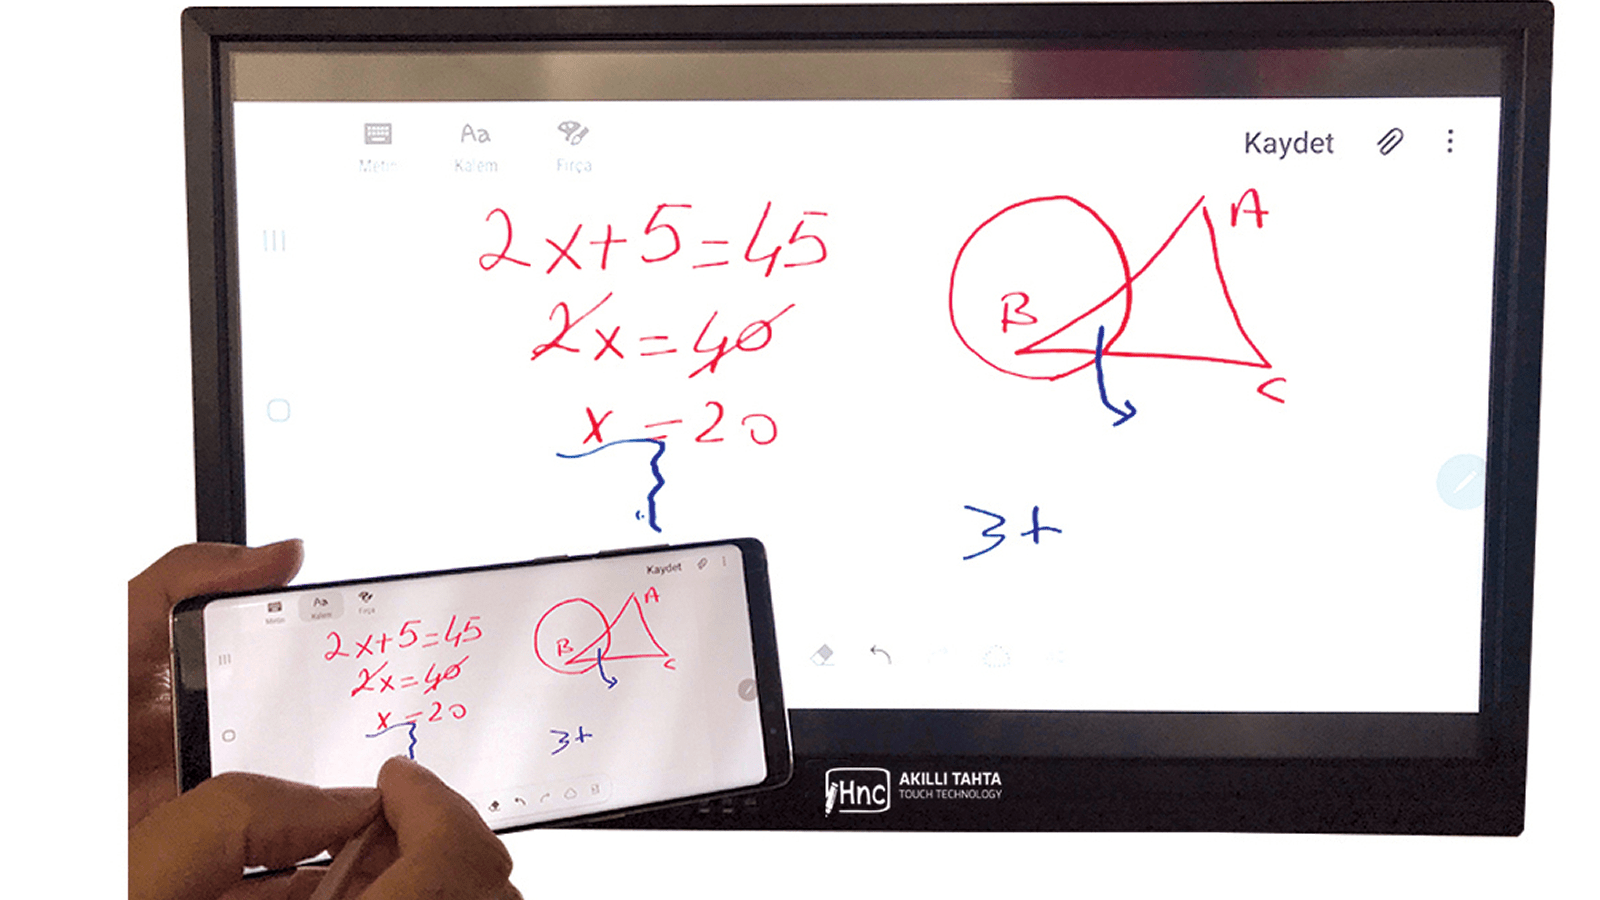 Metin Aa Kalem Fırça Kaydet
2x+5=45
2x=40
x=20
A
B
C
3+
Kaydet
Metin Aa Kalem Fırça
2x+5=45
2x=40
x=20
A
B
C
3+
Hnc AKILLI TAHTA
TOUCH TECHNOLOGY